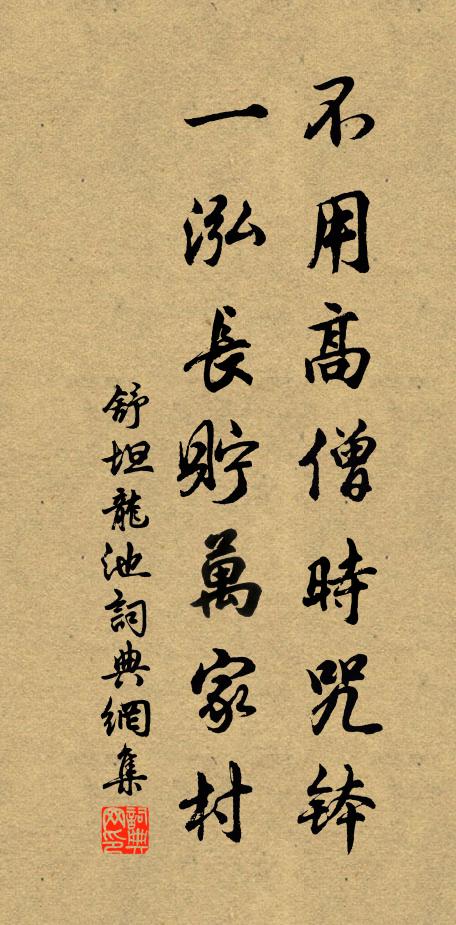 不用高僧時咒鉢
一泓長貯萬家村
舒坦龍池詞典網集
詞典网印